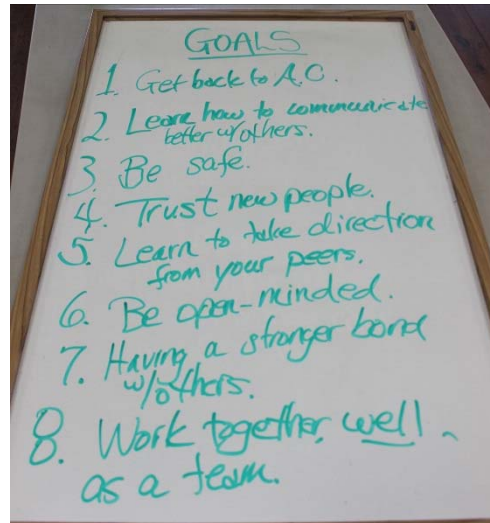 GOALS
1. Get back to A.C.
2. Learn how to communicate
better w/others.
3. Be safe.
4. Trust new people.
5. Learn to take direction
from your peers.
6. Be open-minded.
7. Having a stronger bond
w/others.
8. Work together well
as a team.